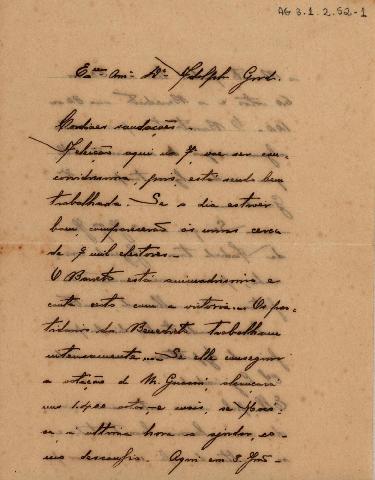 AG 3.1.2.52-1
Exmo Amo Dr Adolpho Gordo.
Cordiaes saudações.
A eleição aqui do 7º vae ser con-
corridissima, pois, está sendo bem
trabalhada. Se o dia estiver
bom, comparecerão ás urnas cerca
de 7 mil eleitores.
O Barreto está animadissimo e
conta certo com a victoria... Os par-
tidarios do Benedicto trabalham
intensamente... Se elle conseguir
a votação de M. alcançará
uns 1.400 votos, e mais, se
a ultima hora o ajudar, co-
mo desconfio. Aqui em S. João